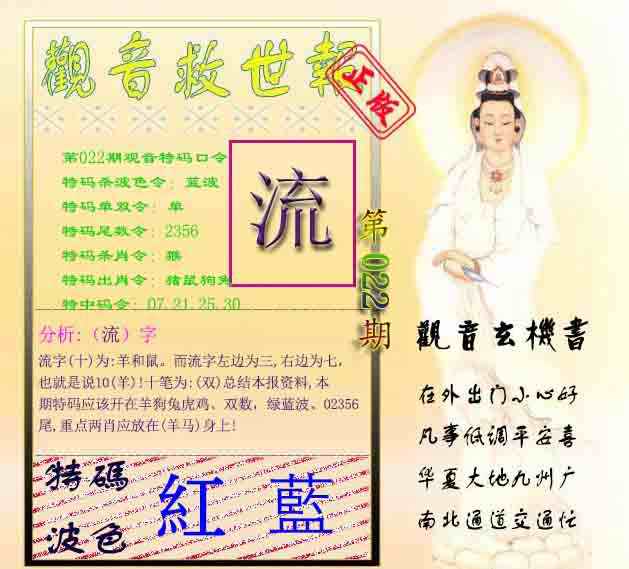 觀音救世報
正传
第022期观音特码口令
特码杀波色令：蓝波
特码单双令：单
特码尾数令：2356
特码杀肖令：猴
特码出肖令：猪鼠狗兔
特中码令：07.21.25.30
流
第022期
分析：（流）字
流字(十)为:羊和鼠。而流字左边为三,右边为七,
也就是说10(羊)!十笔为:(双)总结本报资料,本
期特码应该开在羊狗兔虎鸡、双数，绿蓝波、02356
尾,重点两肖应放在(羊马)身上!
特碼
波色
紅 藍
觀音玄機書
在外出门小心好
凡事低调平安喜
华夏大地九州广
南北通道交通忙